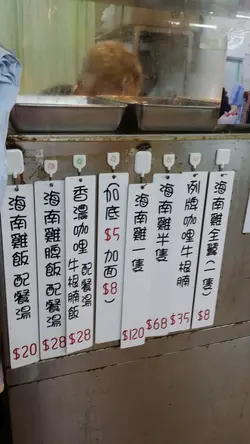 海南雞飯 配餐湯 $20
海南雞脾飯 配餐湯 $28
香濃咖哩牛根腩飯 配餐湯 $28
加底 $5 加面 $8
海南雞一隻 $120
海南雞半隻 $68
例牌咖哩牛根腩 $35
海南雞全翼(一隻) $8